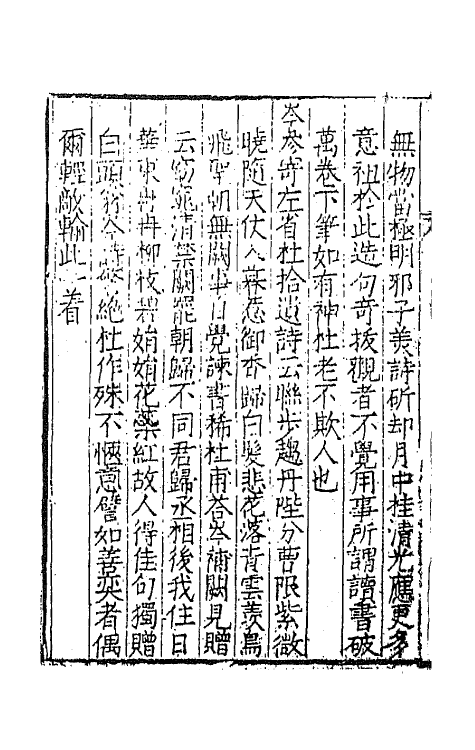 無物當極明邪子美詩斫却月中桂清光應更多
意祖於此造句奇拔觀者不覺用事所謂讀書破
萬卷下筆如有神杜老不欺人也
岑參寄左省杜拾遺詩云聯步趨丹陛分曹限紫微
曉隨天仗入暮惹御香歸白髮悲花落青雲羨鳥
飛聖朝無闕事自覺諫書稀杜甫答岑補闕見贈
云窈窕清禁闥罷朝歸不同君歸丞相後我住日
華東冉冉柳枝碧娟娟花蘂紅故人得佳句獨贈
白頭翁岑詩絕杜作殊不愜意譬如善奕者偶
爾輕敵輸此一着